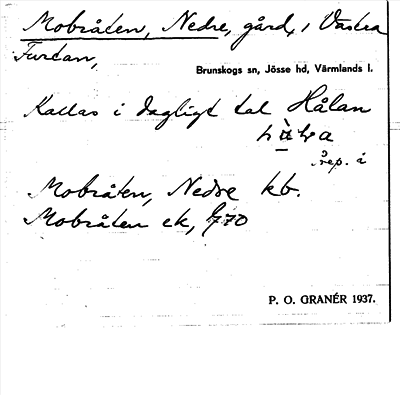 Mobråten, Nedre, gård, i Västra
Furtan,
Brunskogs sn, Jösse hd, Värmlands l.
Kallas i dagligt tal Hålan
rep. å
Mobråten, Nedre kb.
Mobråten ek, 770
P. O. GRANÉR 1937.